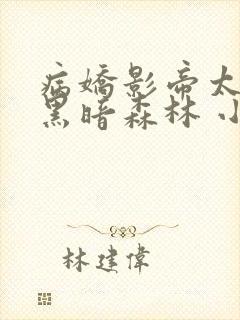 病嬌影帝太
黑暗森林 小
林建偉